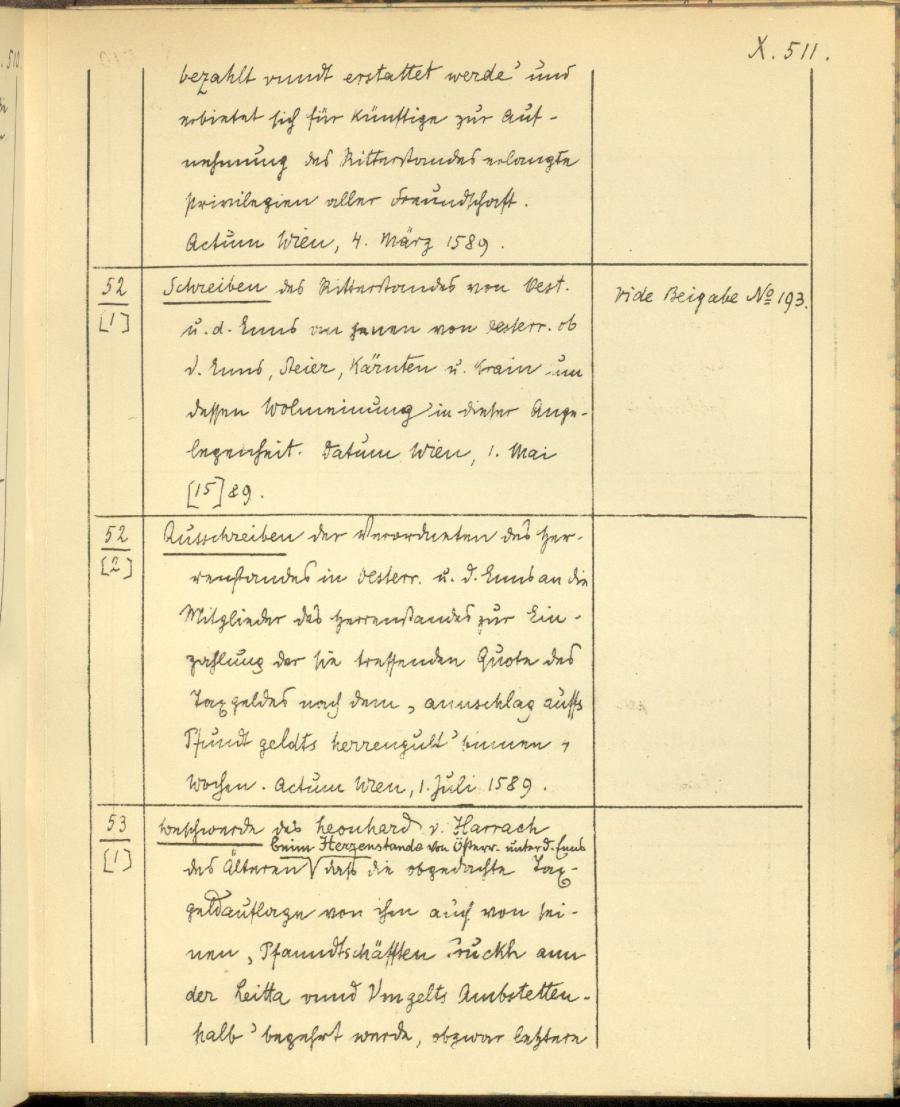 X. 511.
bezahlt vnndt erstattet werde' und
erbietet sich für künftige zur Auf-
nehmung des Ritterstandes erlangte
Privilegien aller Freundschaft.
Actum Wien, 4. März 1589.
52
[1]
Schreiben des Ritterstandes von Oest.
u. d. Enns an jenen von Oesterr. ob
d. Enns, Steier, Kärnten u. Krain um
dessen Wolmeinung in dieser Ange-
legenheit. Datum Wien, 1. Mai
[15]89.
Vide Beigabe No 193.
52
[2]
Ausschreiben der Verordneten des Her-
renstandes in Oesterr. u. d. Enns an die
Mitglieder des Herrenstandes zur Ein-
zahlung der sie treffenden Quote des
Taxgeldes nach dem, annschlag auffs
Pfundt geldts herrengult' binnen 4
Wochen. Actum Wien, 1. Juli 1589.
53
[1]
Beschwerde des Leonhard v. Harrach
beim Herrenstande von Österr. unter d. Enns
des Älteren dass die obgedachte Tax-
geldauflage von ihm auch von sei-
nen, Pfanndtschäfften Pruckh ann
der Leitta vnnd Vmgelts Ambstetten-
halb' begehrt werde, obzwar letztere